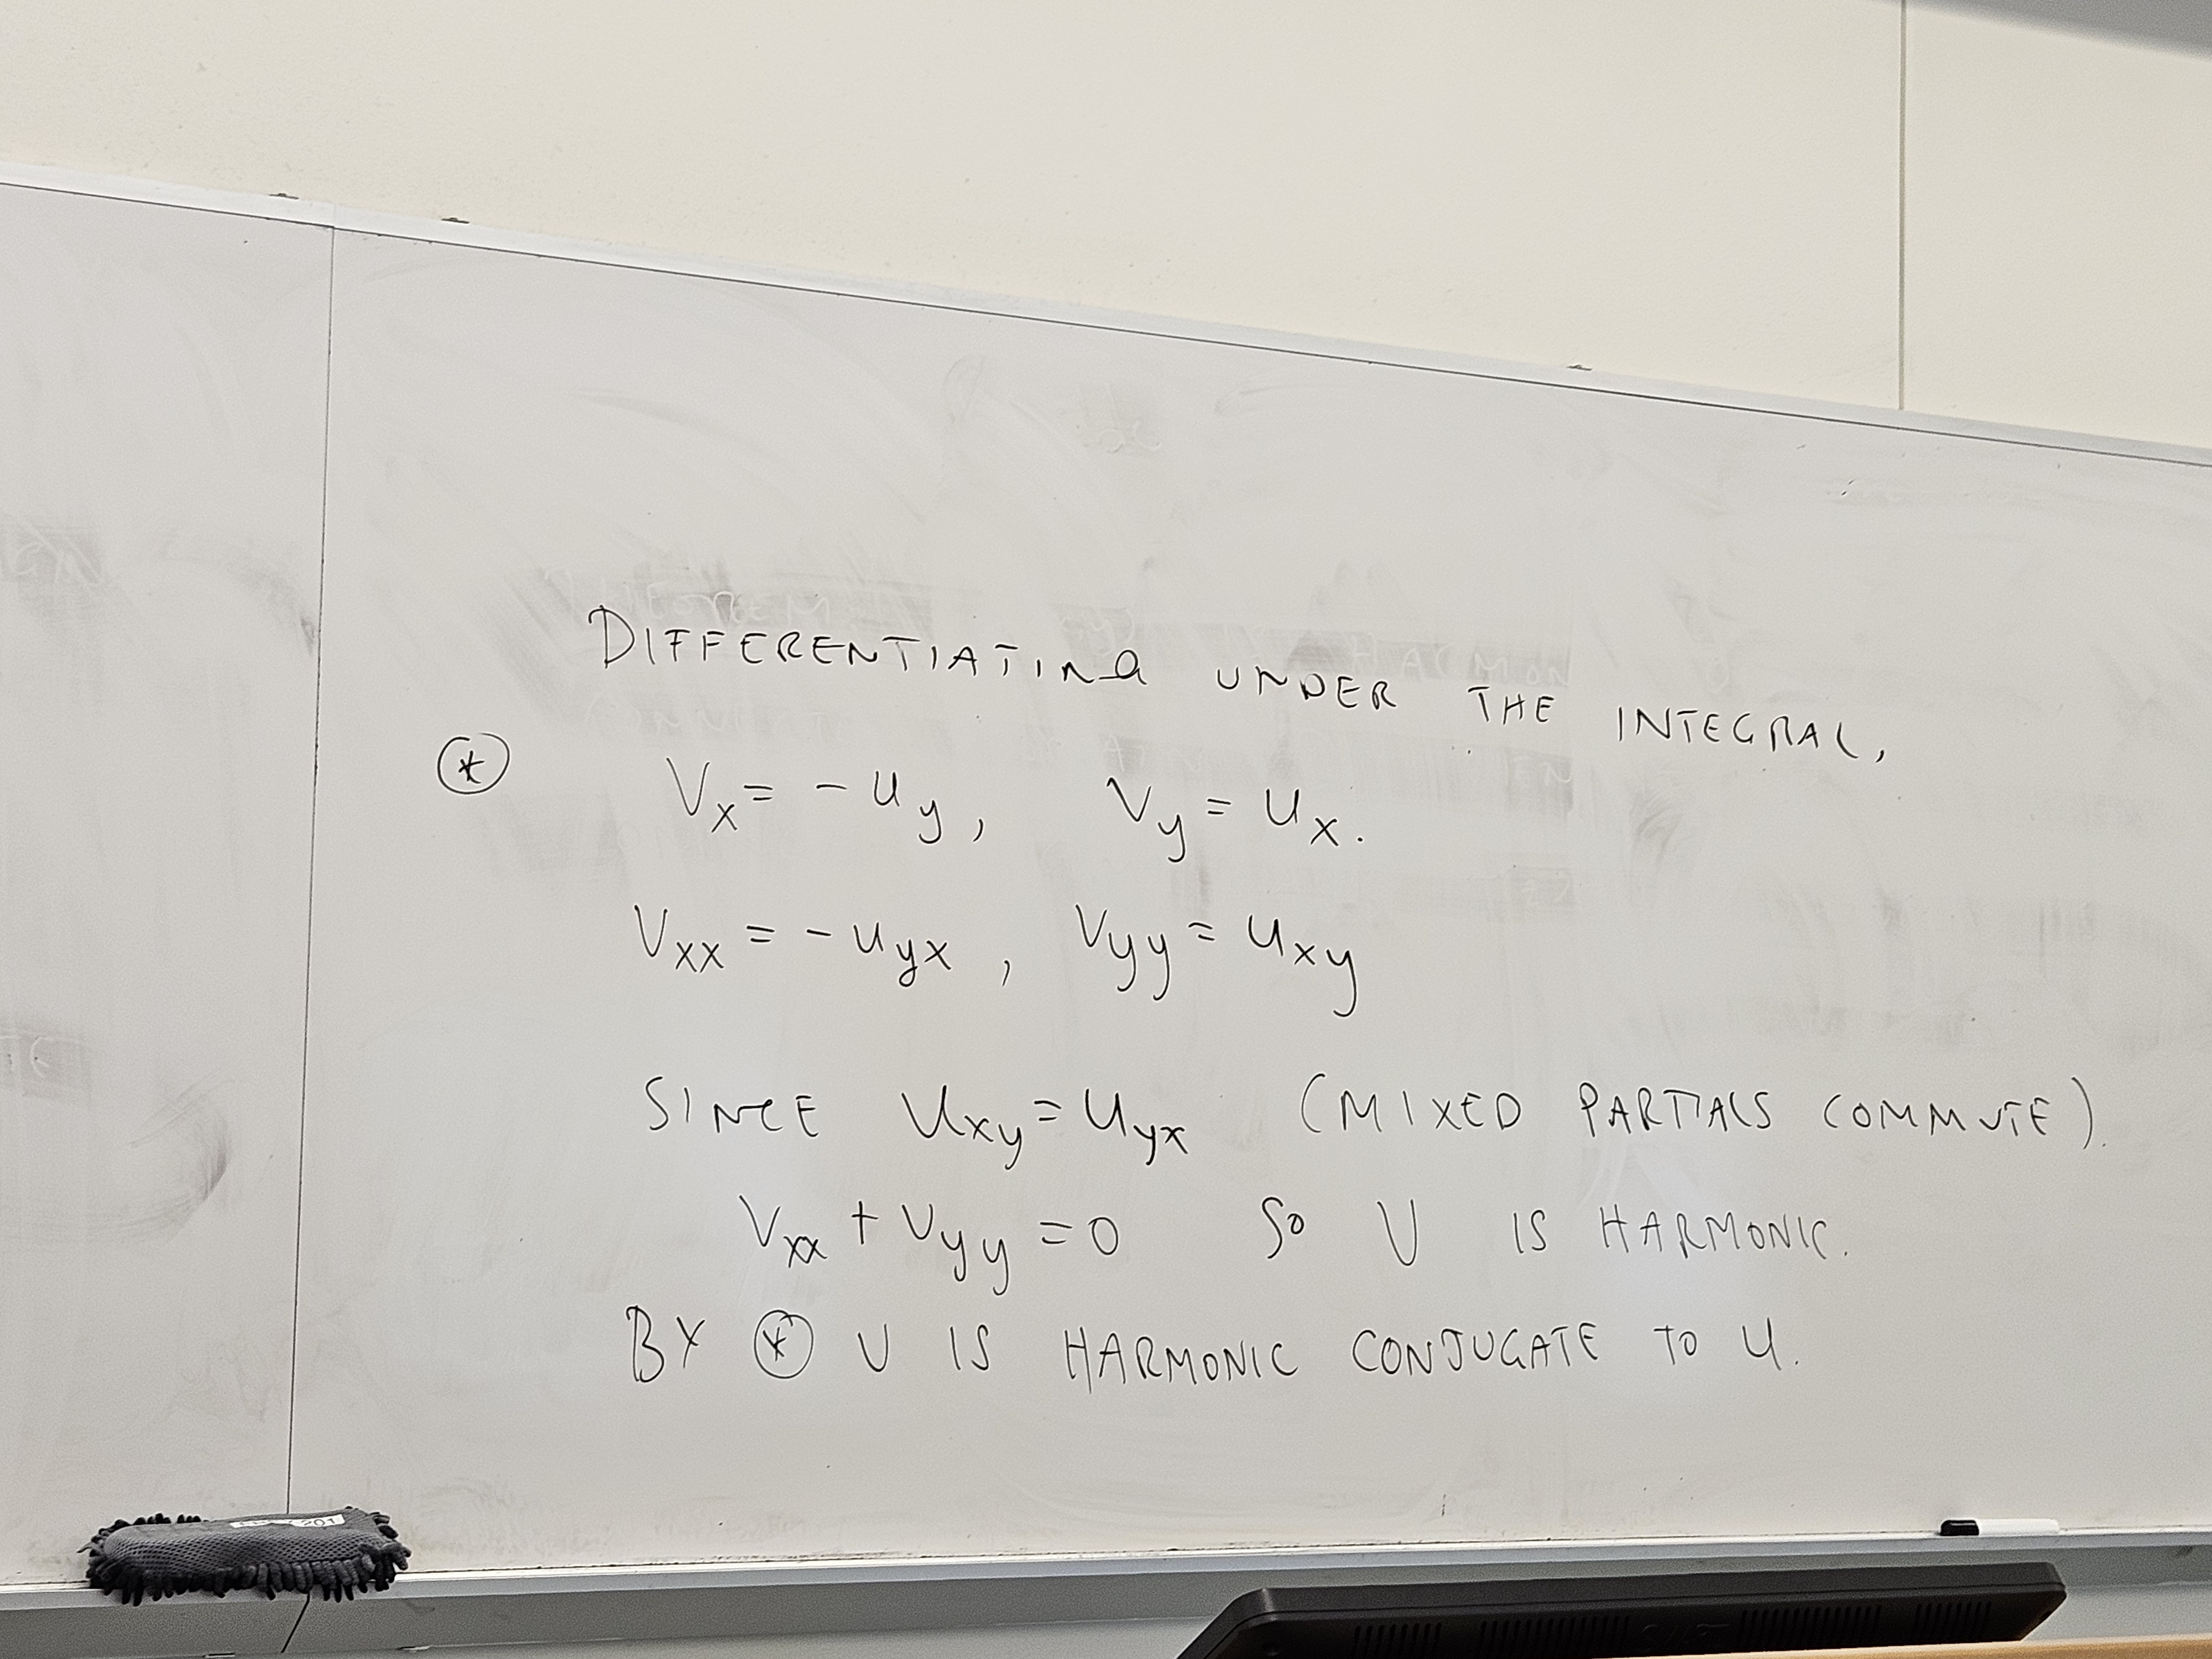 DIFFERENTIATING UNDER THE INTEGRAL,
(*) Vx = - uy, Vy = ux.
Vxx = - uyx, Vyy = uxy
SINCE uxy = uyx (MIXED PARTIALS COMMUTE).
Vxx + Vyy = 0 SO V IS HARMONIC.
BY (*) V IS HARMONIC CONJUGATE TO u.